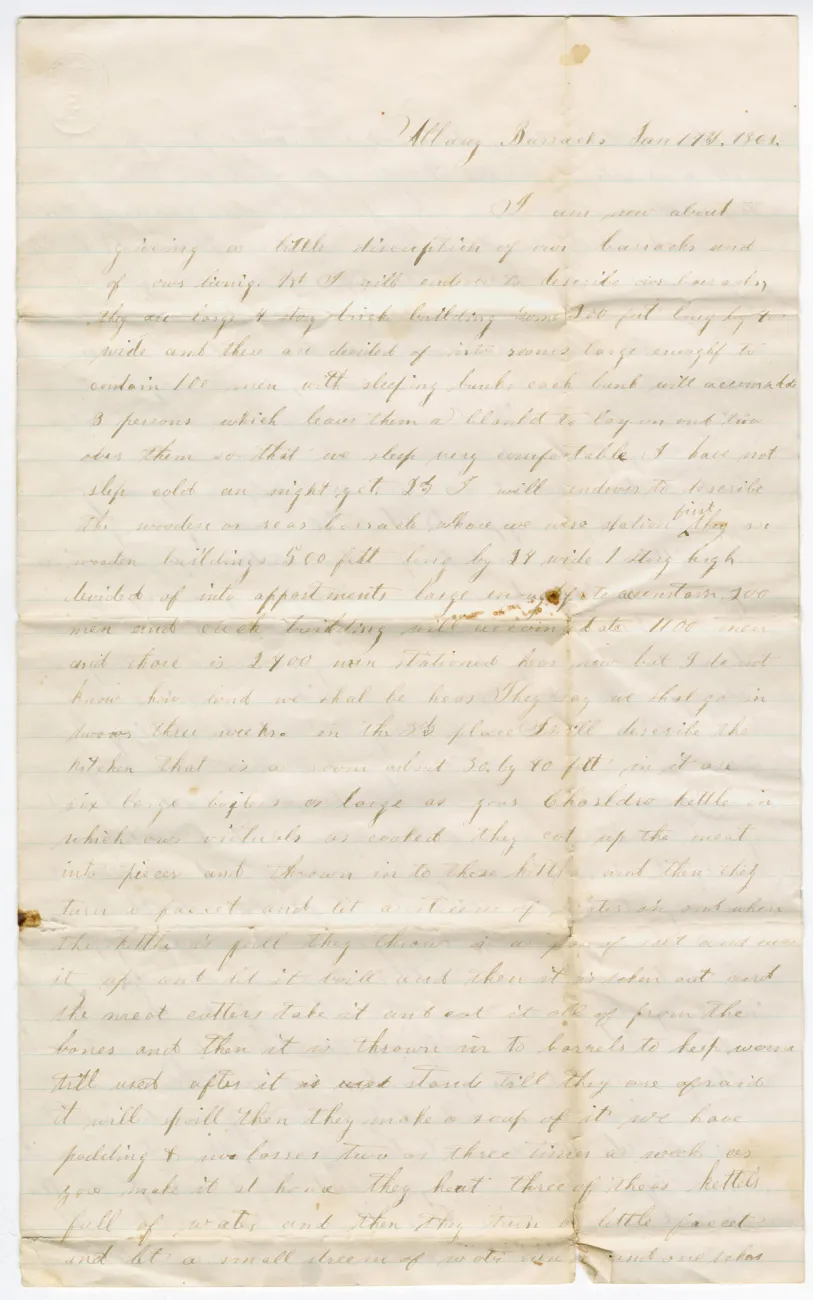 Albany Barracks Jan 17th, 186
I am now about
giveing a little discruption of our barracks and
of our liveing. 1st I will endever to describe our barracks,
they are large 4 story brick building some 200 feet long by
wide and these are devided of into rooms large enough to
contain 100 men with sleeping bunks each bunk will accomadde
3 persons which leaves them a blanket to lay on and two
over them so that we sleep very comfortable I have not
slep cold an night yet. 2d I will endever to describe
the wooden or rear barrack whare we were station first they are
wooden buildings 500 feet long by 24 wide 1 story high
devided of into appartments large enough to acuntain 200
men and each building will accomadate 1100 men
and thare is 2400 men stationed hear now but I do not
know how lond we shal be hear They say we shal go in
two or three weeks. in the 3d place I will describe the
kitchen that is a room about 30 by 40 feet in it are
six large boilers as large as your Chaoldro kettle in
which our victuals as cooked they cot up the meat
into pieces and thrown in to these kettls and then they
turn a faucet and let a streem of water in and when
the kettle is full they throw in a of salt and
it up and let it boil and then it is taken out and
the meat cutters take it and cut it all of from the
bones and then it is thrown in to barrels to keep
till used after it is used stands till they are afraid
it will spill then they make a soup of it we have
pudding & molasses two or three times a week as
you make it at home they heat three of thees kettels
full of water and then they turn a little faucet
and let a small streem of water and one